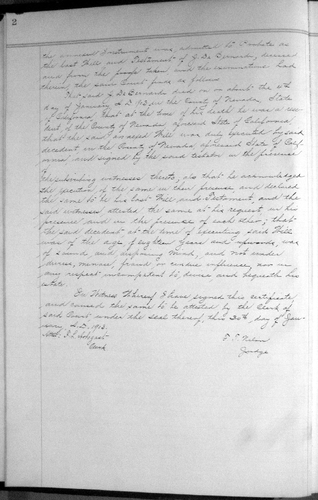 2
the annexed instrument was admitted to Probate as
the last Will and Testament of G. De Bernardi, deceased
and from the proofs taken and the examination had
therein, the said Court finds as follows:
That said G. De Bernardi died on or about the 6th
day of January A.D. 1913, in the County of Nevada, State
of California, that at the time of his death he was a resi-
dent of the County of Nevada aforesaid State of California
that the said annexed Will was duly executed by said
decedent in the County of Nevada aforesaid State of Calif-
ornia and signed by the said testator in the presence
of
the subscribing witnesses thereto, also that he acknowledged
the execution of the same in their presence and declared
the same to be his last Will and Testament, and the
said witnesses attested the same at his request in his
presence and in the presence of each other; that
the said decedent at the time of executing said Will
was of the age of eighteen years and upwards, was
of sound and disposing mind, and not under
duress, menace, fraud or undue influence, nor in
any respect incompetent to devise and bequeath his
estate.
In Witness Whereof I have signed this certificate,
and caused the same to be attested by the Clerk of
said Court under the seal thereof, this 20th day of Jan-
uary A.D. 1913.
Attest:
Clerk
F. T. Nilon
Judge